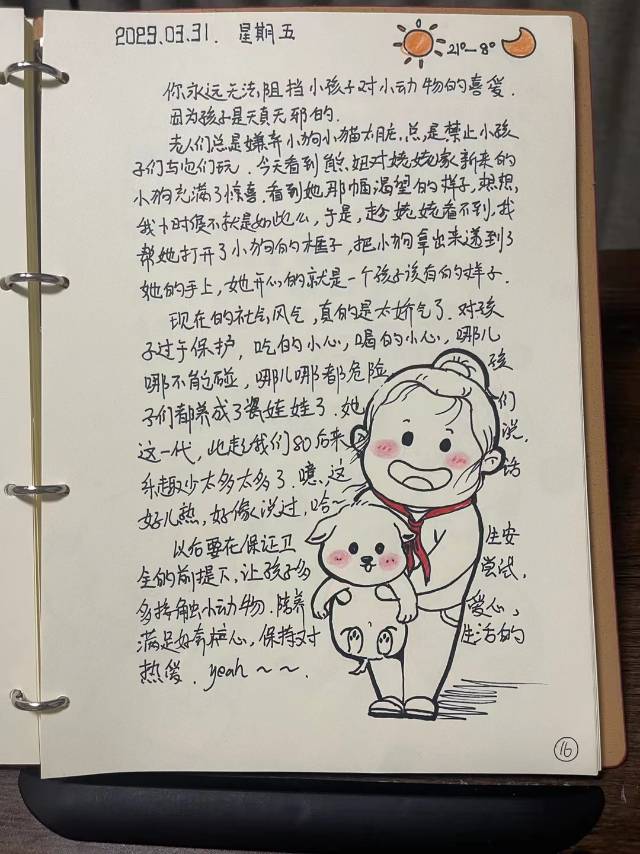 2023.03.31. 星期五
21°—8°
你永远无法阻挡小孩子对小动物的喜爱.
因为孩子是天真无邪的.
老人们总是嫌弃小狗小猫太脏.总是禁止小孩
子们与它们玩.今天看到熊妞对姥姥家新来的
小狗充满了惊喜.看到她那幅渴望的样子,想想,
我小时候不就是如此么,于是,趁姥姥看不到,我
帮她打开了小狗的框子,把小狗拿出来递到了
她的手上,她开心的就是一个孩子该有的样子.
现在的社会风气,真的是太娇气了.对孩
子过于保护,吃的小心,喝的小心,哪儿
哪不能碰,哪儿哪都危险 孩
子们都养成了瓷娃娃了.她 们
这一代,比起我们80后来 说,
乐趣少太多太多了.噫,这 话
好儿熟,好像说过,哈~
以后要在保证卫 生安
全的前提下,让孩子多 尝试,
多接触小动物.陪养 爱心,
满足好奇心,保持对 生活的
热爱.yeah~~.
16